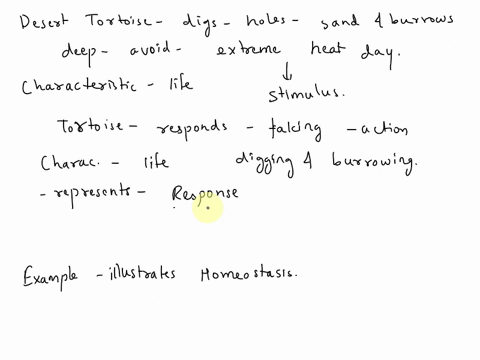 Desert Tortoise - digs - holes - sand & burrows
deep - avoid - extreme heat day.
Characteristic - life
Stimulus.
Tortoise - responds - taking - action
Charac. - life digging & burrowing.
- represents - Response
Example - illustrates Homeostasis.